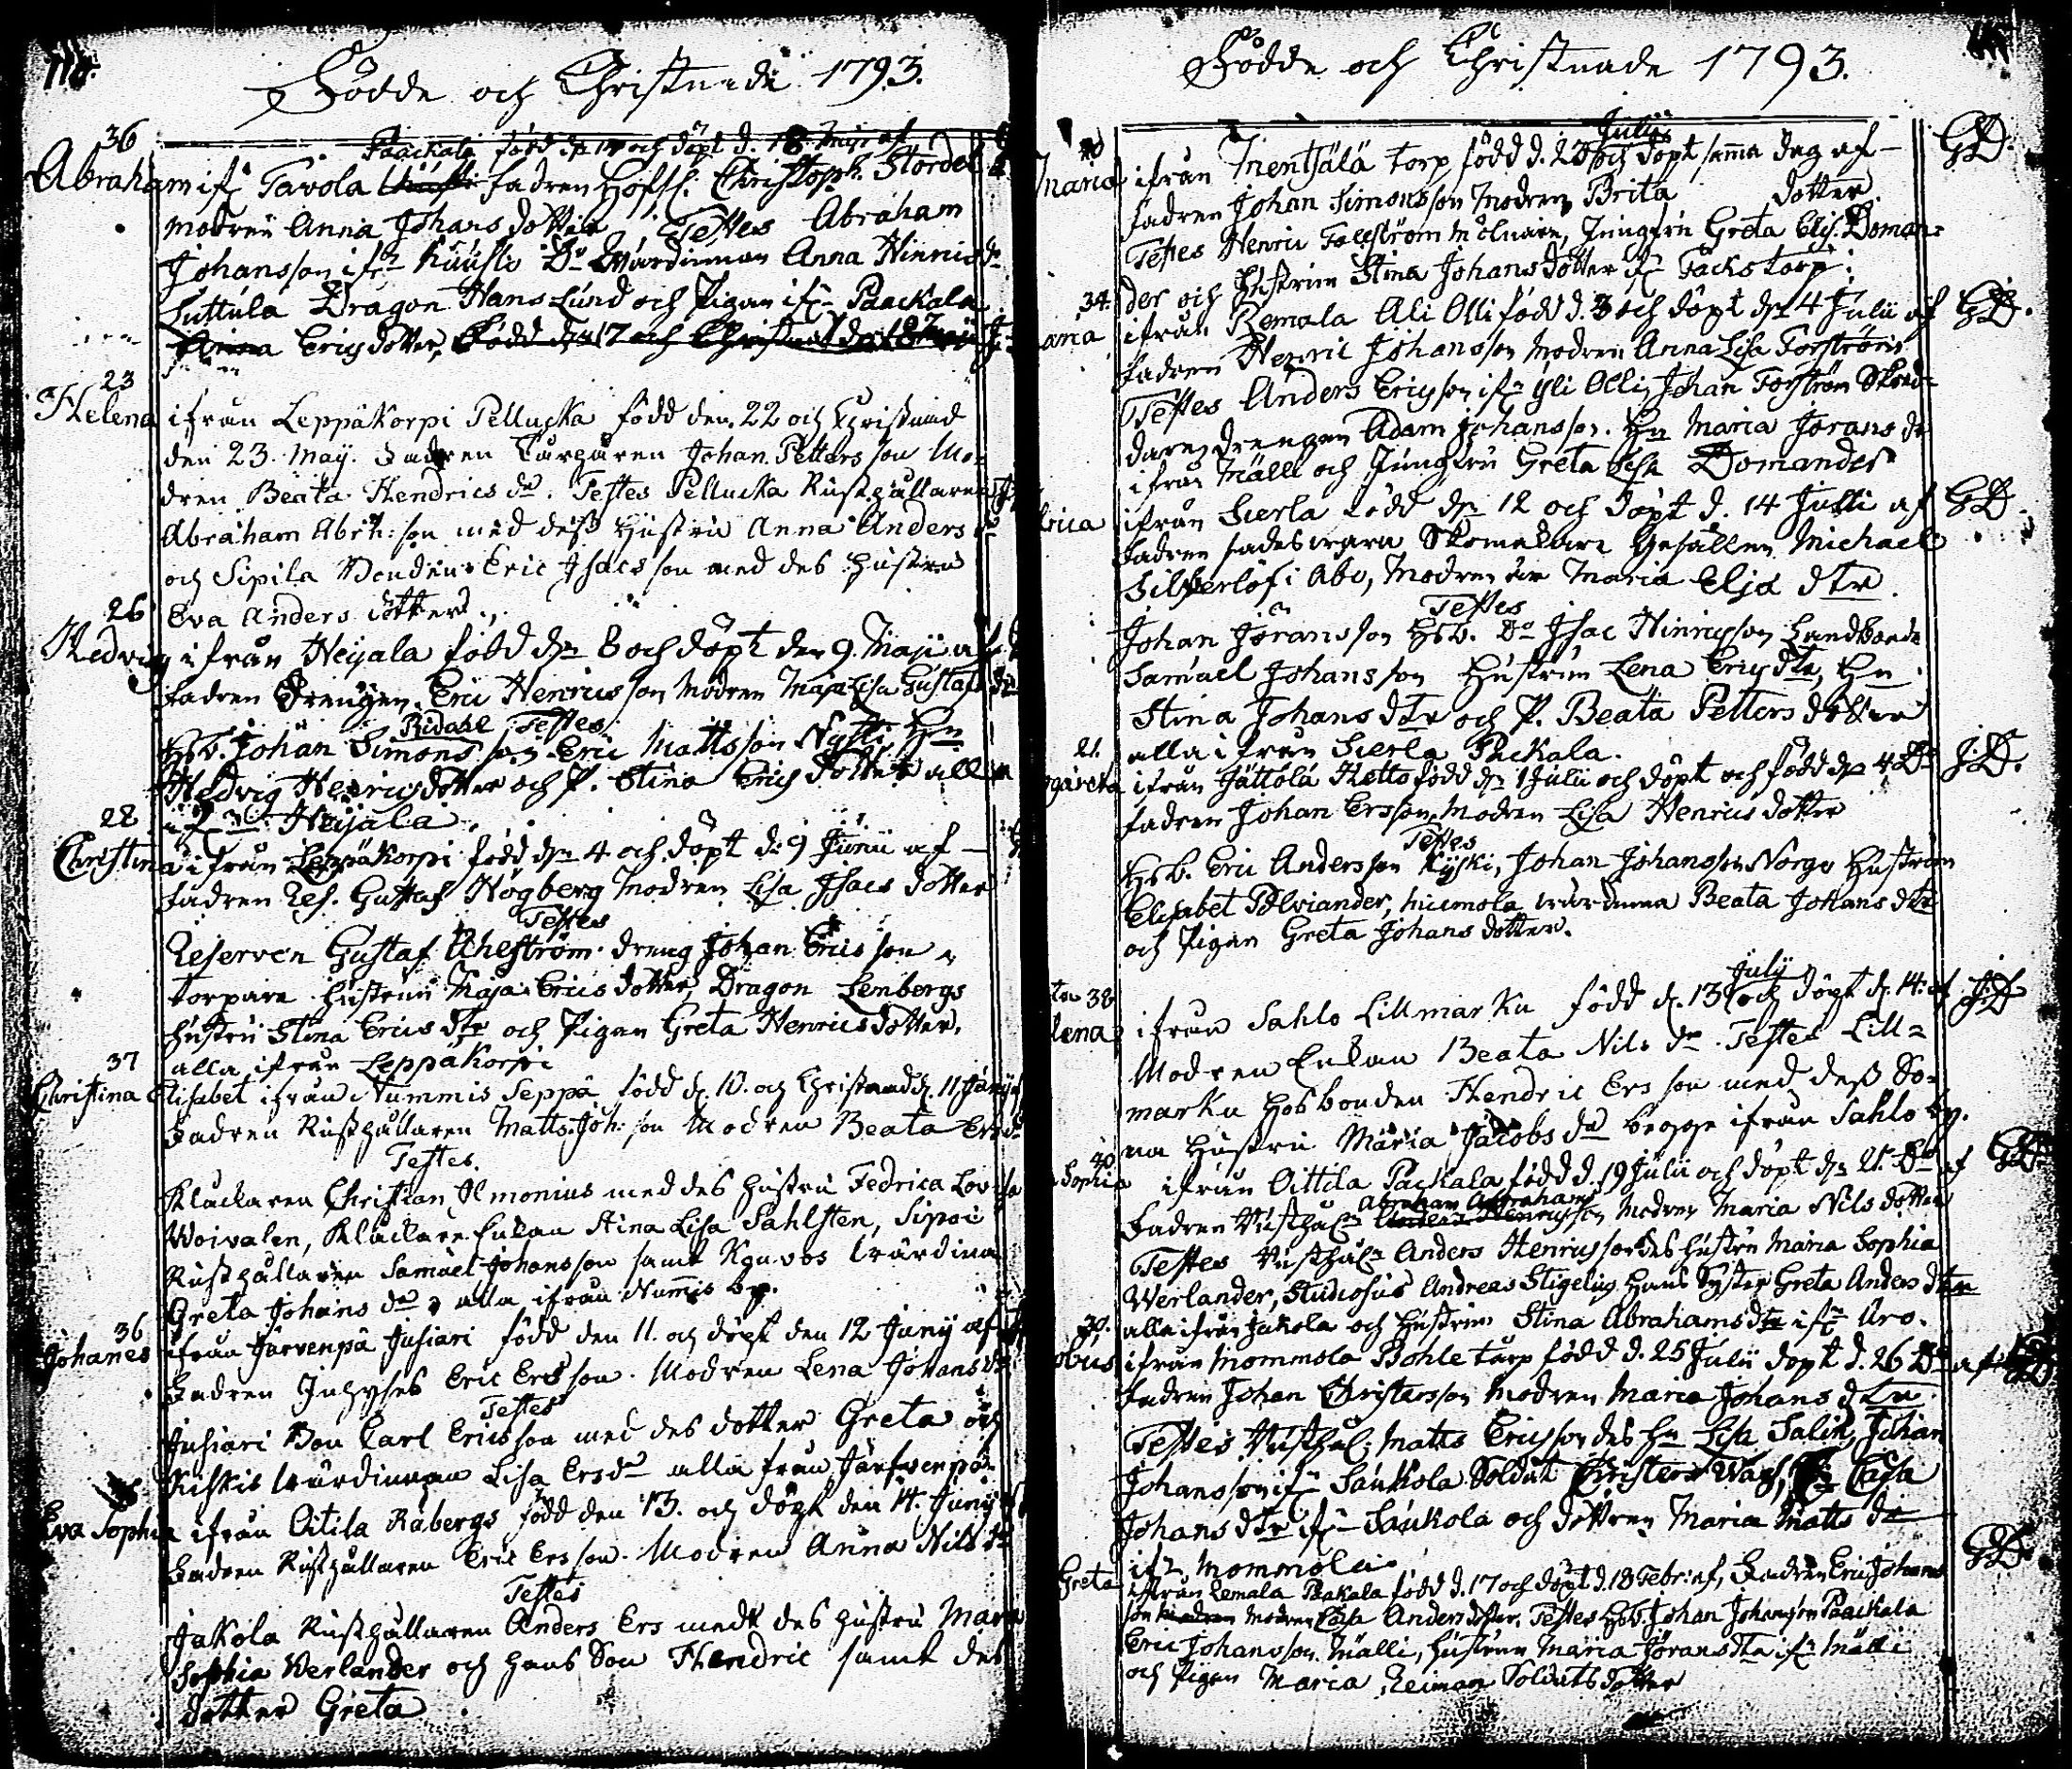 118.
Födde och Christnade 1793.
36
Paackala född d. 17 och döpt d. 18 Maji af
Abraham ifn Tavola fadren Hofsl. Christoph. Stordel
modren Anna Johans dotter Testes Abraham
Johansson ifn Kuusto Do Wärdinnan Anna Hinrics dr
Suttula Dragon Hans Lund och Pigan ifn Paackala
Anna Erics dotter, född d. 17 och Christnad d. 18 Maji
23
Helena ifrån Leppäkorpi Pellucka född den 22 och Christnad
den 23 May. Fadren Torparen Johan Petters son Mo-
dren Beata Hendrics dr. Testes Pellucka Rusthållaren
Abraham Abrh: son med dess Hustru Anna Anders dr
och Sipila Bonden Eric Isacs son med des hustru
Eva Anders dotter.
26
Hedvig ifrån Heijala född dn 8 och döpt den 9. Maji af
Fadren Drengen Eric Henrics son Modren Maja Lisa Gustafs dr
Ridahl Testes
Hsb. Johan Simons son Eric Matts son Nysti Hn
Hedvig Henrics dotter och P. Stina Erics dotter alla
ifn Heijala.
28
Christina ifrån Leppäkorpi född dn 4 och döpt d. 9 Junii af
Fadren Res. Gustaf Högberg Modren Lisa Isacs dotter
Testes
Reserven Gustaf Ahlström dreng Johan Erics son
torpare hustrun Maja Erics dotter, Dragon Lenbergs
hustru Stina Erics dtr och Pigan Greta Henrics dotter,
alla ifrån Leppäkorpi
37
Christina Elisabet ifrån Nummis Seppä född d. 10. och Christnad d. 11 Junij af
Fadren Rusthållaren Matts Joh: son Modren Beata Ers dr
Testes.
Klockaren Christian Almonius med des hustru Fedrica Lovisa
Woivalen, Klockare Enkan Stina Lisa Sahlsten, Sipoi
Rusthållaren Samuel Johansson samt Kouvos wärdinna
Greta Johans dr alla ifrån Num̅is by.
36
Johanes ifrån Järvenpä Juhiari född den 11. och döpt den 12 Juny af
Fadren Inhyses Eric Ersson. Modren Lena Johans dr
Testes
Juhiari Bon Carl Ericsson med des dotter Greta och
Kiskis wärdinnan Lisa Ersdr alla från Järfvenpä.
Eva Sophia ifrån Oitila Råbergs född den 13. och döpt den 14. Juny
Fadren Rusthållaren Eric Ersson. Modren Anna Nils dr
Testes
Jakola Rusthållaren Anders Ers medt des hustru Maria
Sophia Werlander och hans Son Hendric samt des
dotter Greta
Födde och Christnade 1793.
40 Julii
Maria ifrån Mentsälä torp född d. 23 och döpt samma dag af GD.
Fadren Johan Simonsson Modren Brita dotter
Testes Henric Fallström Molnare, Jungfru Greta Lis. Doman-
der och Hustrun Stina Johans dotter ifn Tackstorp.
34
ana ifrån Remala Ali Olli född d. 3 och döpt dn 4 Julii af GD.
Fadren Henric Johansson Modren Anna Lisa Forström
Testes Anders Ericsson ifn Yli Olli, Johan Forström Skräd-
dare, drengen Adam Johansson. Hn Maria Jörans dr
ifrån Mälli och Jungfru Greta Lisa Domander
rica ifrån Sierla född dn 12 och döpt d. 14 Julii af GD.
Fadren Skomakare Gesällen Michael
Silfverlöf i Abo, Modren Maria Elja dtr.
Testes
Johan Jöransson Hsb. Do Isac Hinricsson Landbonde
Samuel Johansson Hustrun Lena Erics dtr, Hn
Stina Johans dtr och P. Beata Petters dotter
alla ifrån Sierla Packala.
21.
gareta ifrån Jättölä Ketto född dn 1 Julii och döpt och född dn 4 Do JD.
Fadren Johan Ersson, Modren Lisa Henrics dotter
Testes
Hsb. Eric Andersson Kyski, Johan Johansson Norgo Hustrun
Elisabet Polviander, wärdinna Beata Johans dtr
och Pigan Greta Johans dotter.
38 July
lena ifrån Sahlo Lillmarku född d. 13 och döpt d. 14: af JD
Modren Enkan Beata Nils dr Testes Lill-
marku Hosbonden Hendric Ersson med dess So-
na Hustru Maria Jacobs dr begge ifrån Sahlo by.
40
Sophia ifrån Oittila Packala född d. 19 Julii och döpt dn 21. Do af GD.
Abraham Abrahams
Fadren Rusthåln Anders Henricsson Modren Maria Nils dotter
Testes Rusthåln Anders Henricsson des hustru Maria Sophia
Werlander, Studiosus Andreas Stigelius hans Syster Greta Anders dtr
alla ifrån Jakola och Hustrun Stina Abrahams dtr ifn Aro.
30.
obus ifrån Mommola Bohle torp född d. 25 Julii döpt d. 26 Do af GD
Fadren Johan Christersson Modren Maria Johans dtr
Testes Rusthål: Matts Ericsson des Hn Lisa Salin, Johan
Johansson ifn Saukola Soldat Christer Wass, Caisa
Johans dtr ifn Saukola och dottren Maria Matts dr
ifn Mommola.
Greta ifrån Remala Paakala född d. 17 och döpt d. 18 Febr: af, Fadren Eric Johans GD.
son Modren Modren Caisa Anders dotter. Testes Hsb. Johan Johansson Paackala
Eric Johansson Mälli, Hustrun Maria Jörans dtr ifn Mälli
och Pigan Maria Reiman Soldats dotter